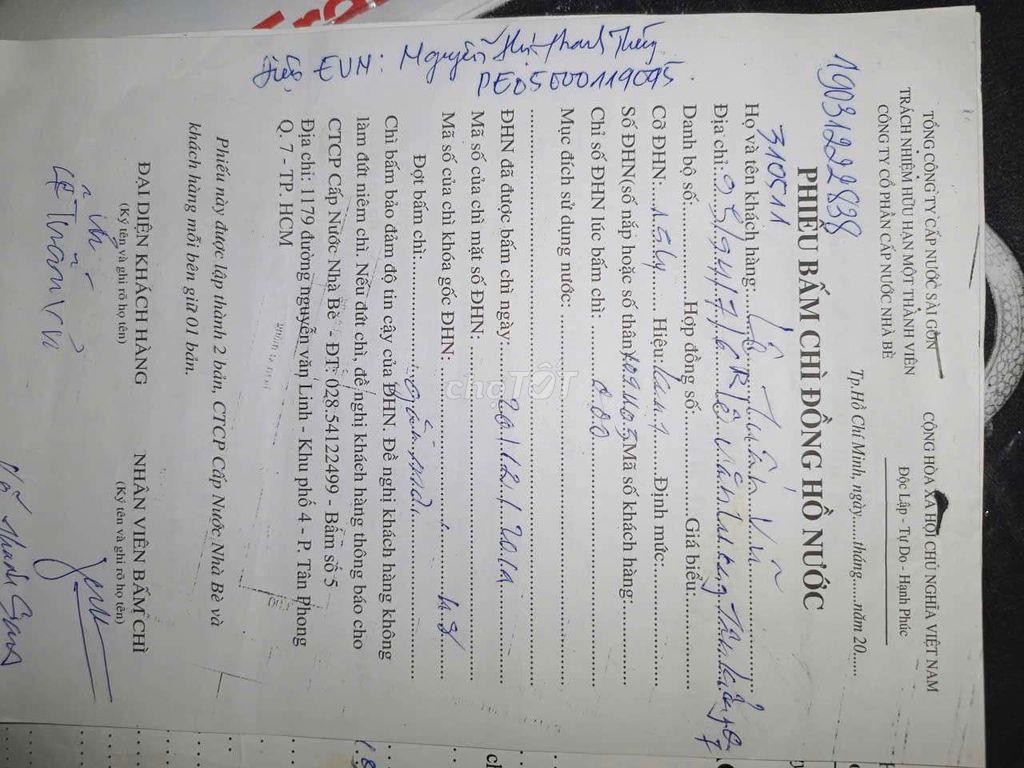 TỔNG CÔNG TY CẤP NƯỚC SÀI GÒN
TRÁCH NHIỆM HỮU HẠN MỘT THÀNH VIÊN
CÔNG TY CỔ PHẦN CẤP NƯỚC NHÀ BÈ
CỘNG HÒA XÃ HỘI CHỦ NGHĨA VIỆT NAM
Độc Lập - Tự Do - Hạnh Phúc
Tp.Hồ Chí Minh, ngày......tháng......năm 20......
19031222838
PHIẾU BẤM CHÌ ĐỒNG HỒ NƯỚC
310511
Họ và tên khách hàng: Lê Tuấn Vũ
Địa chỉ:
Danh bộ số: Hợp đồng số: Giá biểu:
Cỡ ĐHN: 15ly Hiệu: Định mức:
Số ĐHN(số nắp hoặc số thân) Mã số khách hàng:
Chỉ số ĐHN lúc bấm chì: 000
Mục đích sử dụng nước:
ĐHN đã được bấm chì ngày:
Mã số của chì mặt số ĐHN:
Mã số của chì khóa gốc ĐHN:
Đợt bấm chì:
Chì bấm bảo đảm độ tin cậy của ĐHN. Đề nghị khách hàng không
làm đứt niêm chì. Nếu đứt chì, đề nghị khách hàng thông báo cho
CTCP Cấp Nước Nhà Bè - ĐT: 028.54122499 - Bấm số 5
Địa chỉ: 1179 đường nguyễn văn Linh - Khu phố 4 - P. Tân Phong
Q. 7 - TP. HCM
Phiếu này được lập thành 2 bản, CTCP Cấp Nước Nhà Bè và
khách hàng mỗi bên giữ 01 bản.
ĐẠI DIỆN KHÁCH HÀNG
(Ký tên và ghi rõ họ tên)
Lê Tuấn Vũ
NHÂN VIÊN BẤM CHÌ
(Ký tên và ghi rõ họ tên)
EVN: Nguyễn Thị Thanh
PE05000119095
chợTỐT